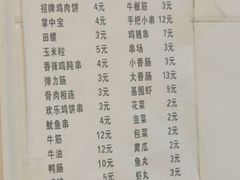 招牌鸡肉饼 4元 牛板筋 3元
掌中宝 4元 手把小串 12元
田螺 3元 鸡翅串 7元
玉米粒 5元 串场 3元
香辣鸡肫串 4元 小香肠 3元
弹力肠 3元 大香肠 13元
骨肉相连 3元 基围虾 9元
欢乐鸡饼串 3元 花菜 2元
鱿鱼串 4元 韭菜 2元
牛筋 12元 包菜 2元
牛油 12元 黄瓜 2元
鸭肠 10元 鱼丸 3元
虾丸 3元